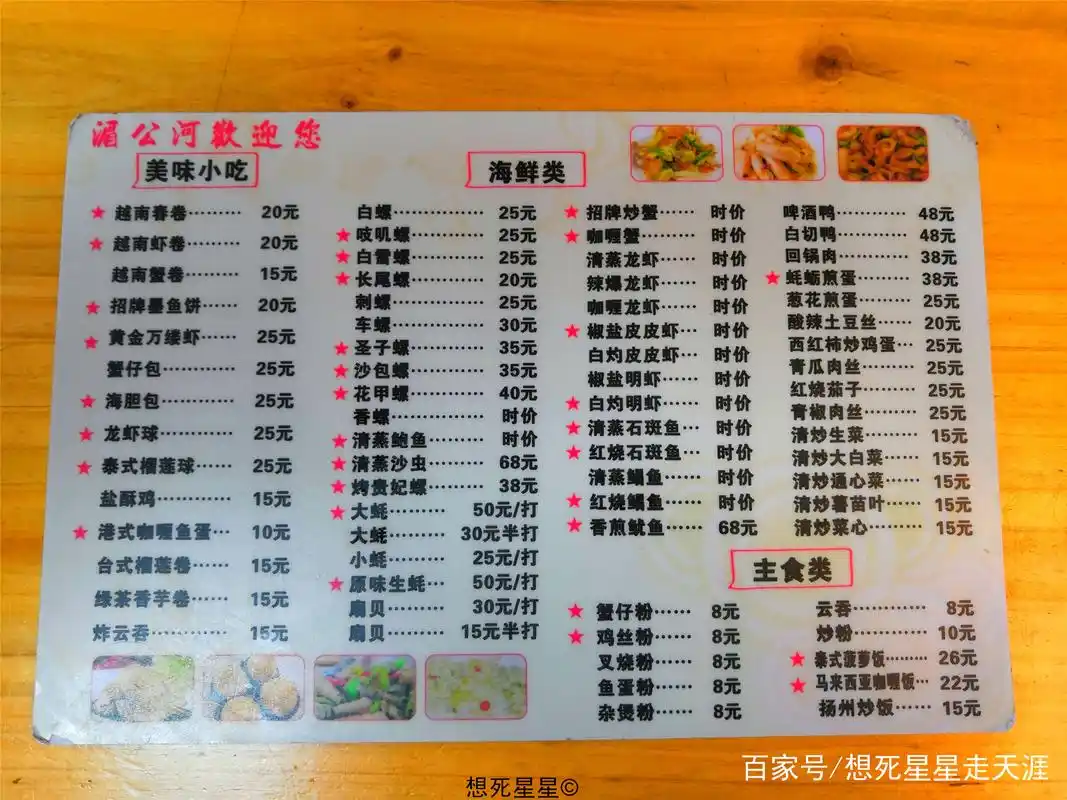 湄公河歡迎您
美味小吃
★ 越南春卷……… 20元
★ 越南虾卷……… 20元
越南蟹卷……… 15元
★ 招牌墨鱼饼…… 20元
★ 黄金万缕虾…… 25元
蟹仔包………… 25元
★ 海胆包………… 25元
★ 龙虾球………… 25元
★ 泰式榴莲球…… 25元
盐酥鸡………… 15元
★ 港式咖喱鱼蛋… 10元
台式榴莲卷…… 15元
绿茶香芋卷…… 15元
炸云吞………… 15元
海鲜类
白螺…………… 25元
★ 吱叽螺………… 25元
★ 白雪螺………… 25元
★ 长尾螺………… 20元
刺螺…………… 25元
车螺…………… 30元
★ 圣子螺………… 35元
★ 沙包螺………… 35元
★ 花甲螺………… 40元
香螺…………… 时价
★ 清蒸鲍鱼……… 时价
★ 清蒸沙虫……… 68元
★ 烤贵妃螺……… 38元
★ 大蚝………… 50元/打
大蚝………… 30元半打
小蚝………… 25元/打
★ 原味生蚝… 50元/打
扇贝……… 30元/打
扇贝……… 15元半打
★ 招牌炒蟹…… 时价
★ 咖喱蟹……… 时价
清蒸龙虾…… 时价
辣爆龙虾…… 时价
咖喱龙虾…… 时价
★ 椒盐皮皮虾… 时价
白灼皮皮虾… 时价
椒盐明虾…… 时价
★ 白灼明虾…… 时价
★ 清蒸石斑鱼… 时价
★ 红烧石斑鱼… 时价
清蒸鲳鱼…… 时价
★ 红烧鲳鱼…… 时价
★ 香煎鱿鱼…… 68元
啤酒鸭………… 48元
白切鸭………… 48元
回锅肉………… 38元
★ 蚝蛎煎蛋……… 38元
葱花煎蛋……… 25元
酸辣土豆丝…… 20元
西红柿炒鸡蛋… 25元
青瓜肉丝……… 25元
红烧茄子……… 25元
青椒肉丝……… 25元
清炒生菜……… 15元
清炒大白菜…… 15元
清炒通心菜…… 15元
清炒薯苗叶…… 15元
清炒菜心……… 15元
主食类
★ 蟹仔粉…… 8元
★ 鸡丝粉…… 8元
叉烧粉…… 8元
鱼蛋粉…… 8元
杂煲粉…… 8元
云吞………… 8元
炒粉………… 10元
★ 泰式菠萝饭……… 26元
★ 马来西亚咖喱饭… 22元
扬州炒饭…… 15元
百家号/想死星星走天涯
想死星星©